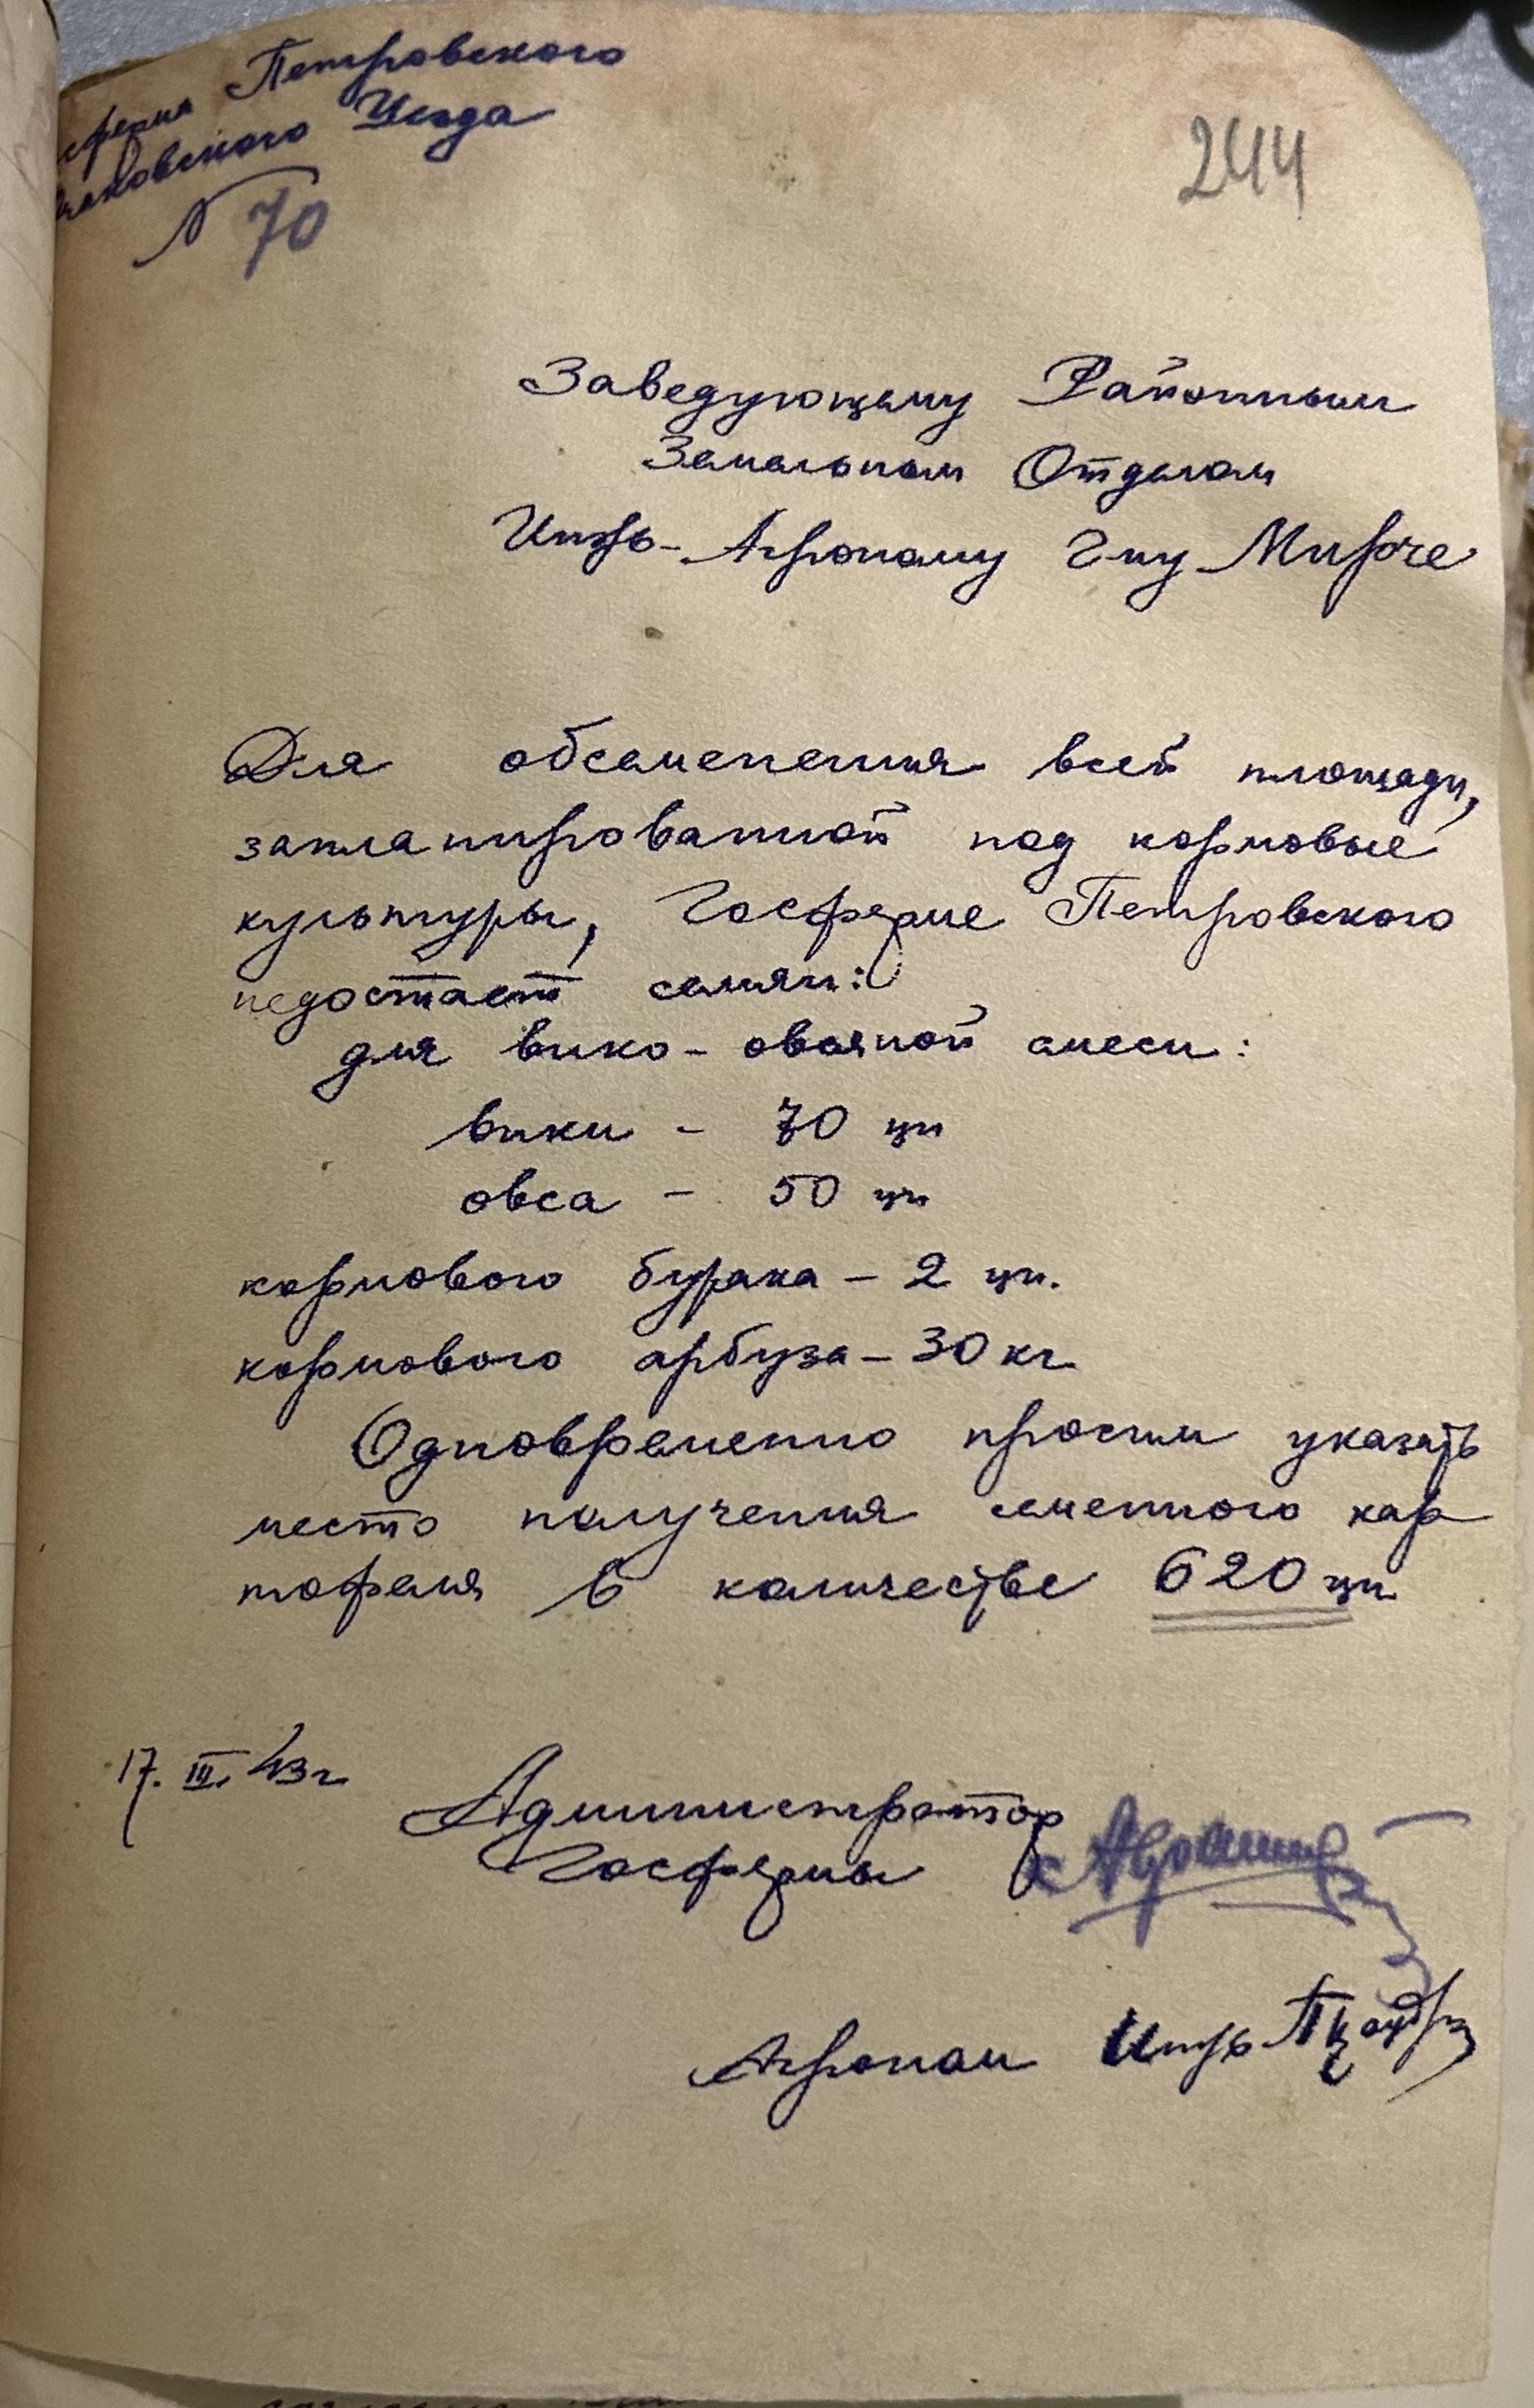 ферма Петровского
чаковского Уезда
N 70
244
Заведующему Районным
Земельным Отделом
Инж-Агроному Г-ну Мирче
Для обсеменения всей площади,
запланированной под кормовые
культуры, Госферме Петровского
недостает семян:
для вико-овсяной смеси:
вики - 70 цн
овса - 50 цн
кормового бурака - 2 цн.
кормового арбуза - 30 кг
Одновременно просим указать
место получения семенного кар
тофеля в количестве 620 цн
17. III. 43 г
Администратор
Госфермы
Агроном Инж